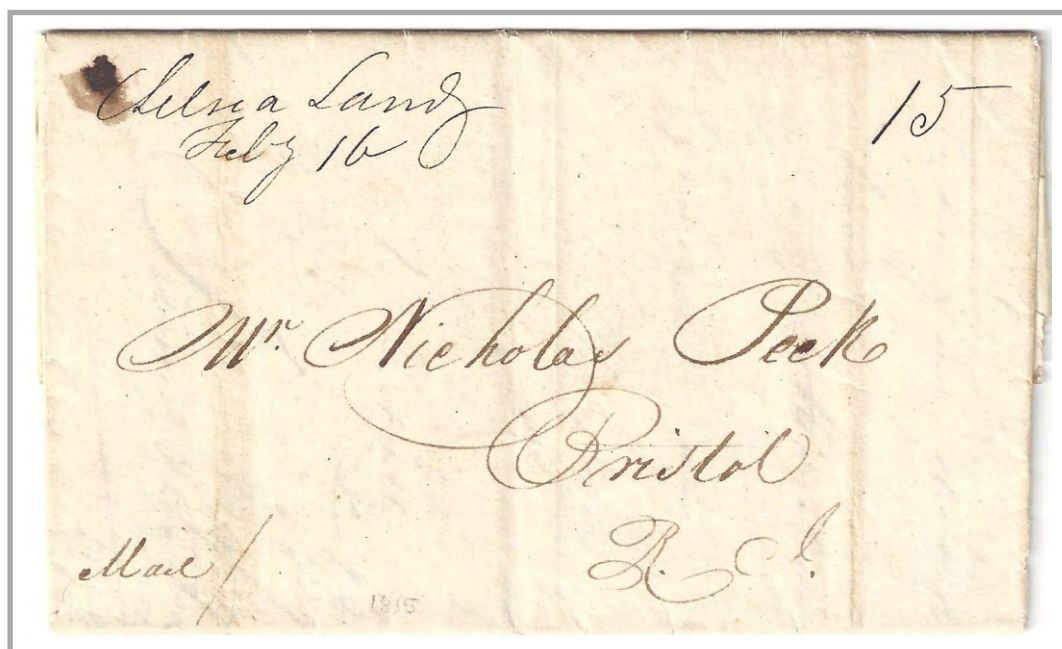 Chelsea Landg
Feby 16
15
Mr. Nicholas Peck
Bristol
R. I.
Mail /
1815